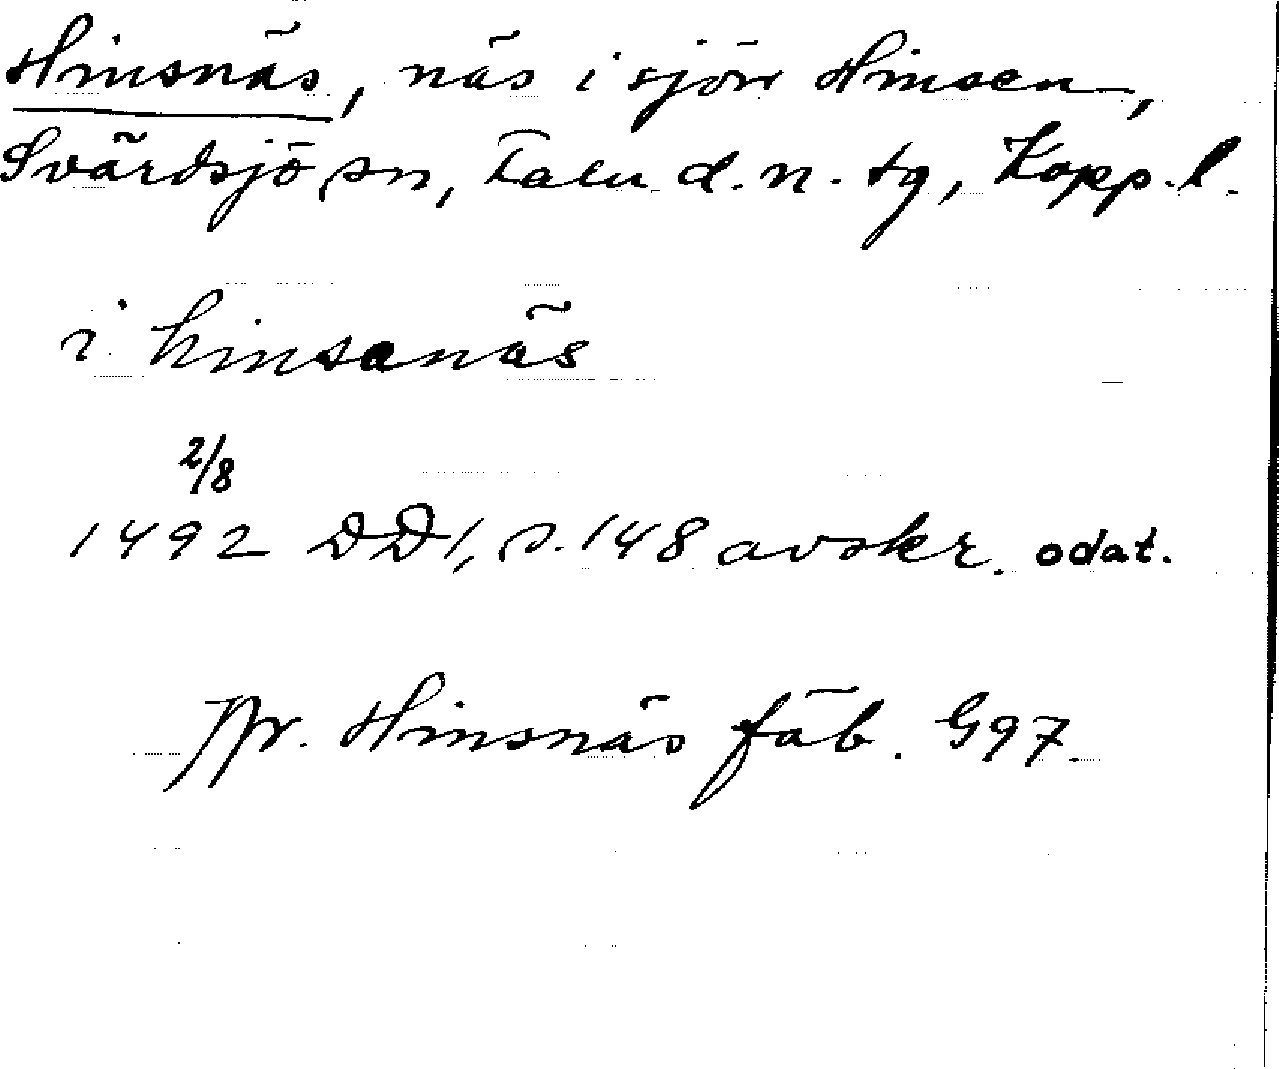 Hinsnäs, näs i sjön Hinsen,
Svärdsjö sn, Falu d. n. tg, Kopp. l.
i hinsanäs
2/8
1492 DD 1, s. 148 avskr. odat.
Jfr. Hinsnäs fäb. G97.